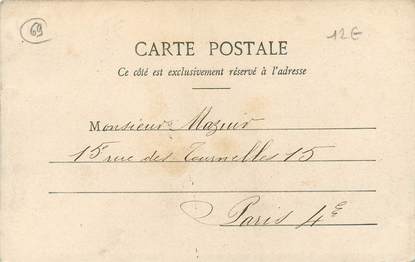 69
12€
CARTE POSTALE
Ce côté est exclusivement réservé à l'adresse
Monsieur Mazuir
15 rue des Tournelles 15
Paris 4e